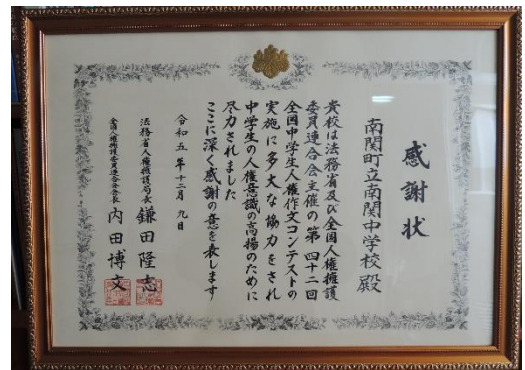 感謝状
南関町立南関中学校殿
貴校は法務省及び全国人権擁護
委員連合会主催の第四十二回
全国中学生人権作文コンテストの
実施に多大な協力をされ
中学生の人権意識の高揚のために
尽力されました
ここに深く感謝の意を表します
令和五年十二月九日
法務省人権擁護局長 鎌田隆志
全国人権擁護委員連合会会長 内田博文